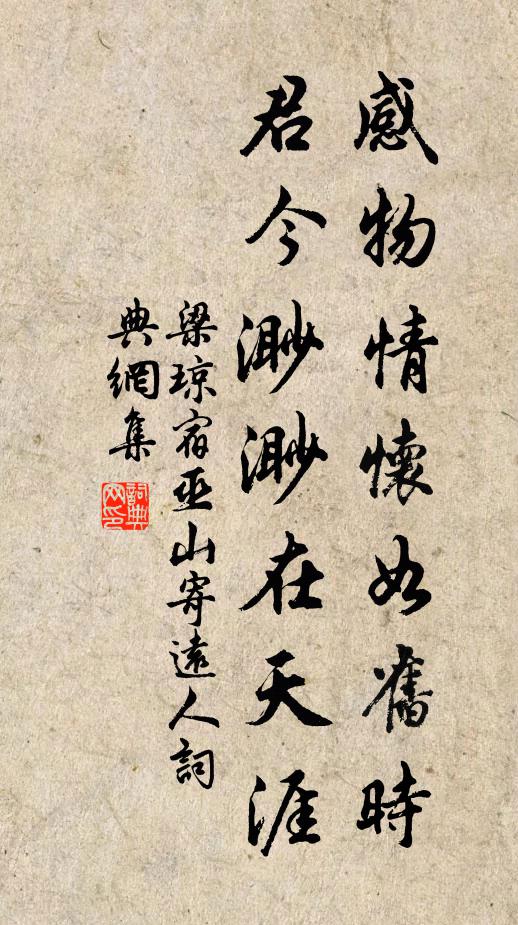 感物情懷如舊時
君今渺渺在天涯
梁琼宿巫山寄遠人詞
典網集
詞典網印